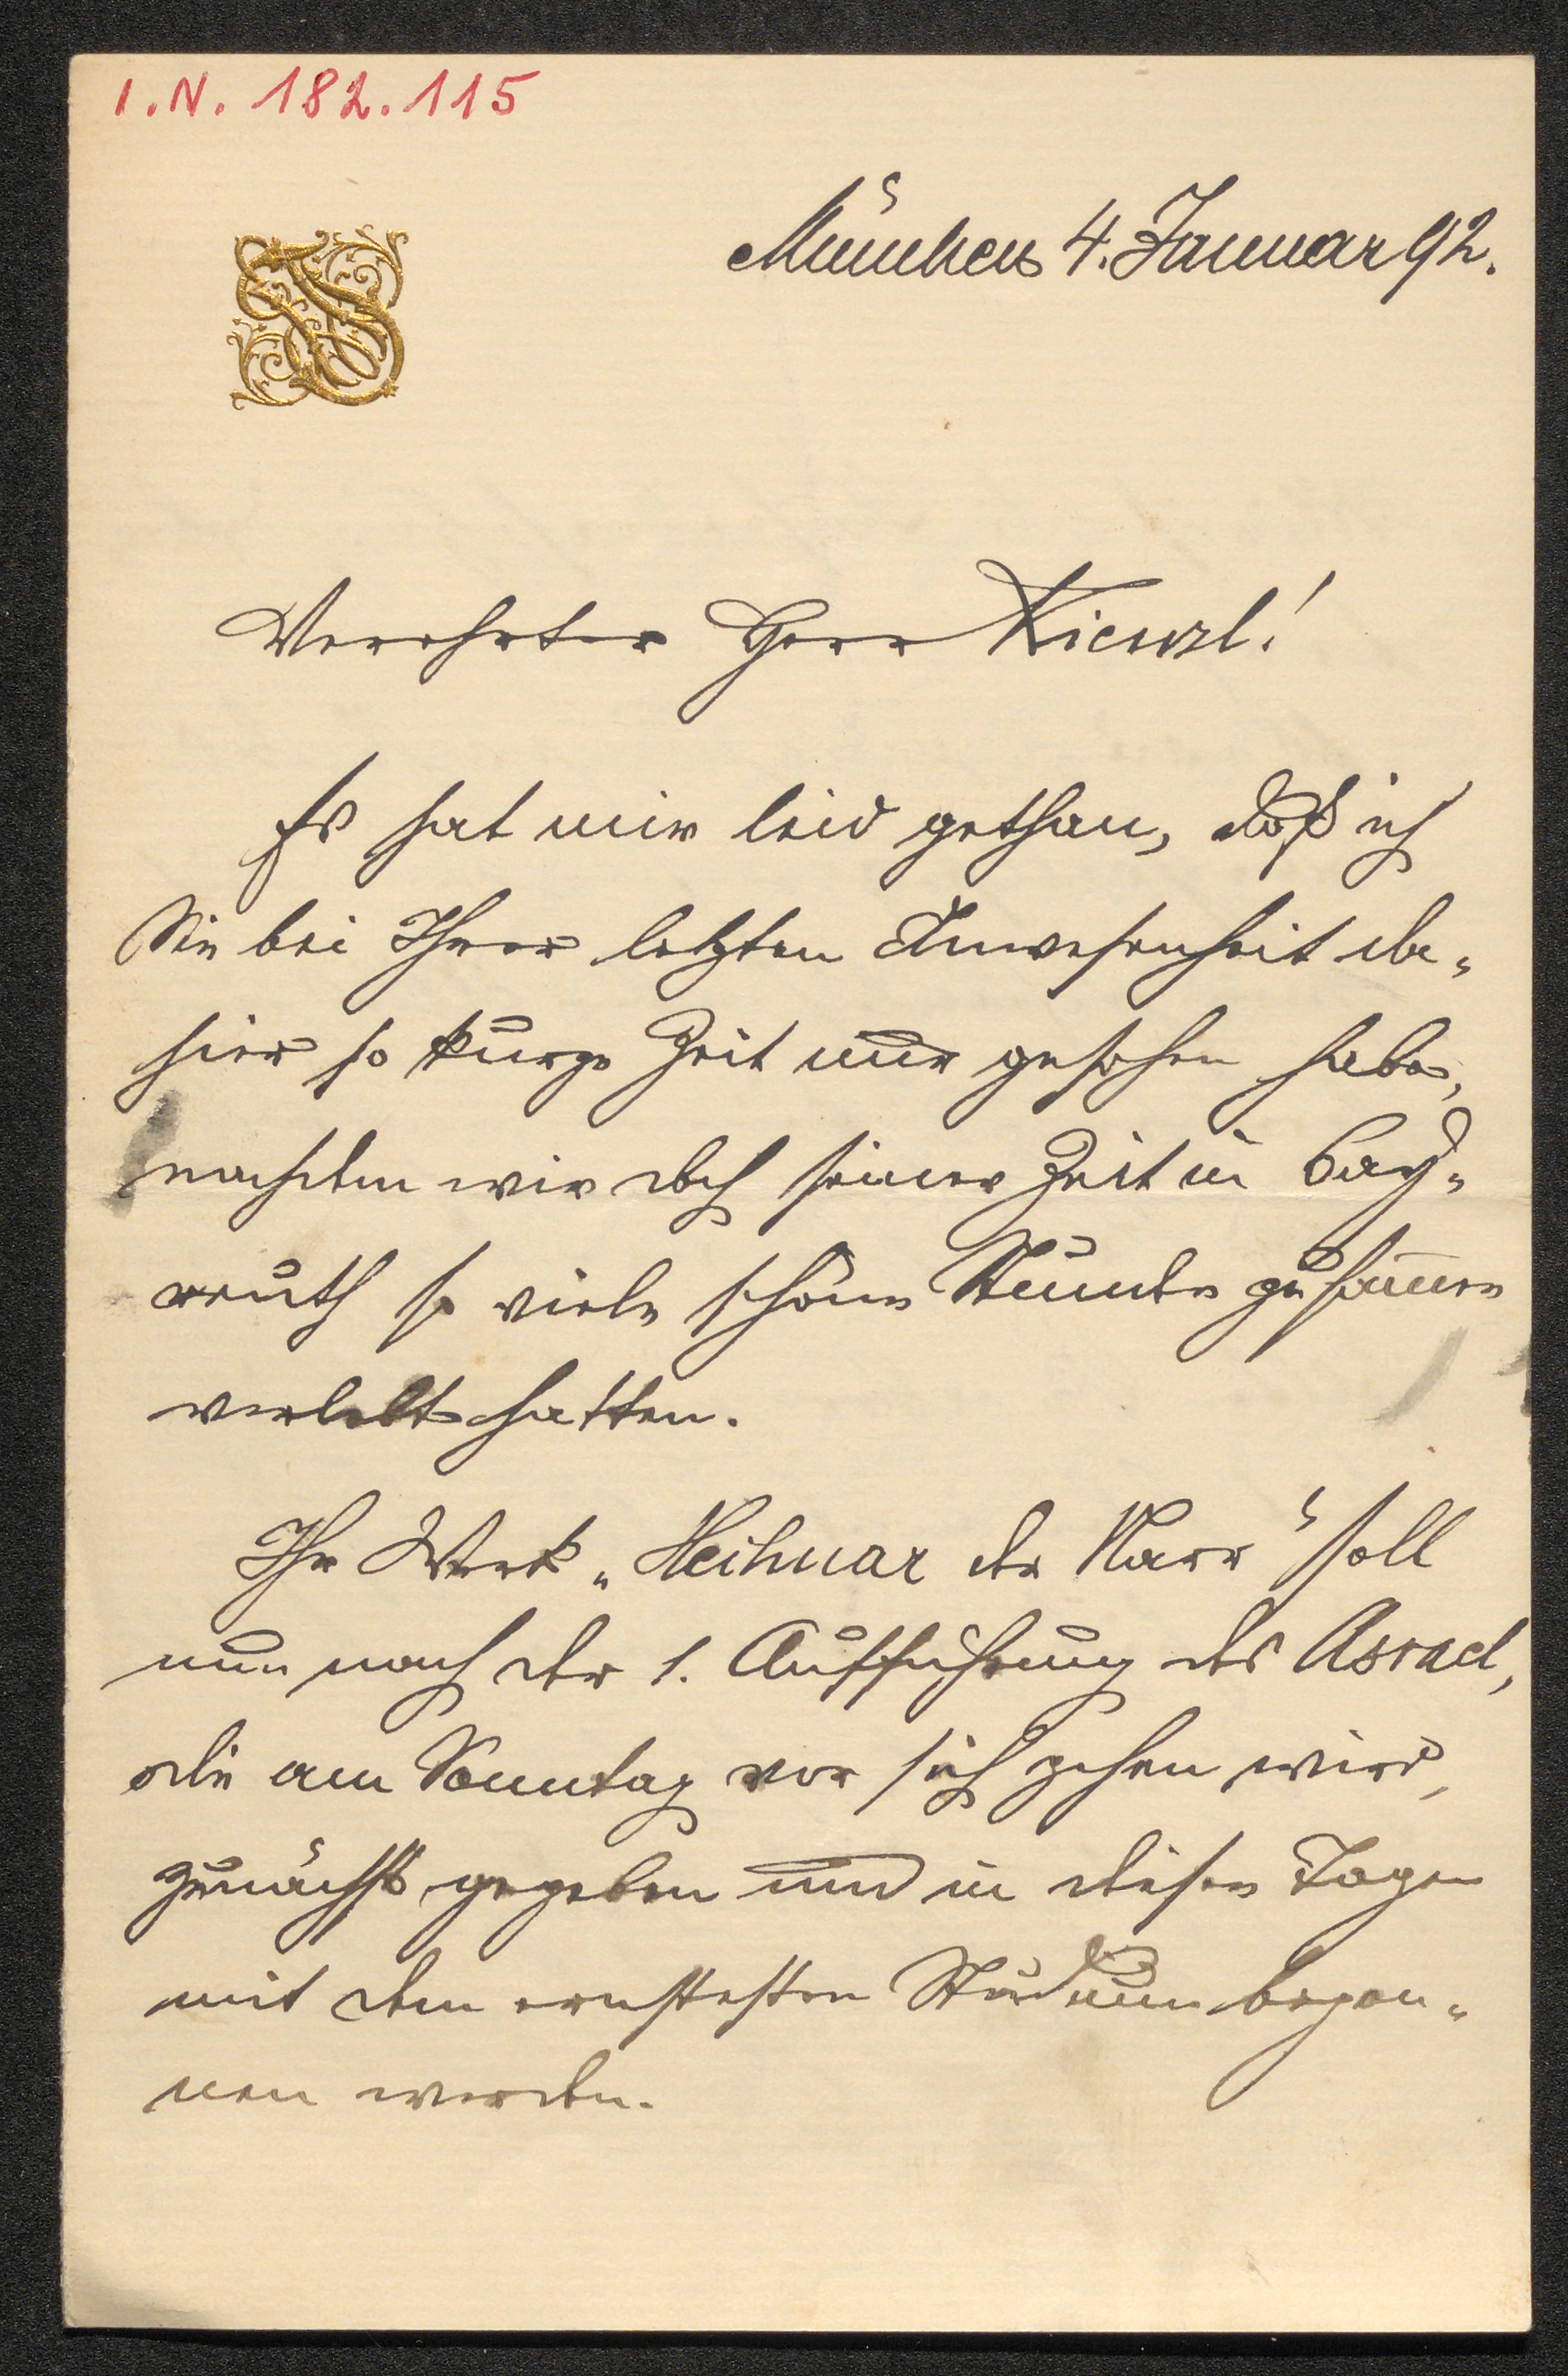 I.N. 182.115
München 4. Januar 92.
Verehrter Herr Kienzl!
Es hat mir leid gethan, daß ich
Sie bei Ihrer letzten Anwesenheit da-
hier so kurze Zeit nur gesehen habe,
nachdem wir doch seiner Zeit in Bay-
reuth so viele schöne Stunden zusam̄en
verlebt hatten.
Ihr Werk „Heilmar der Narr" soll
nun nach der 1. Aufführung des Asrael,
die am Sonntag vor sich gehen wird,
zunächst gegeben und in diesen Tagen
mit dem ernstesten Studium begon-
nen werden.